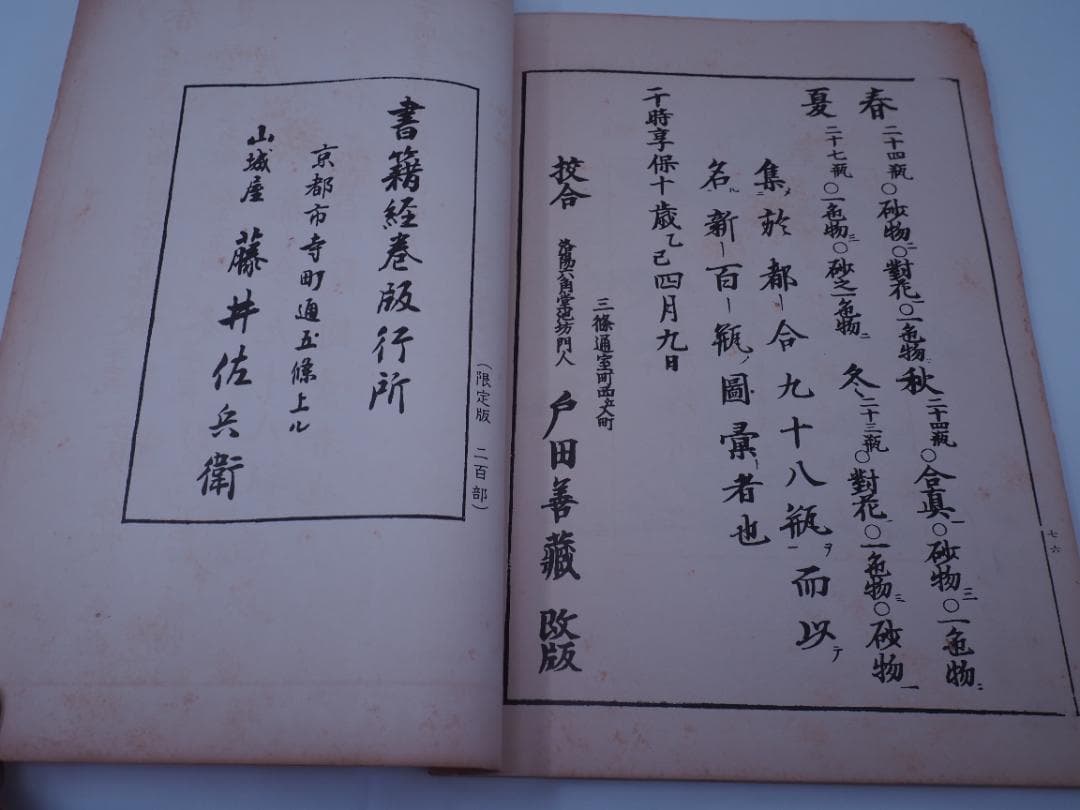 春 二十四瓶 ○砂物二 ○對花一 ○一色物二 秋 二十四瓶 ○合真一 ○砂物三 ○一色物二
夏 二十七瓶 ○一色物三 ○砂之一色物二 冬 二十三瓶 ○對花一 ○一色物三 ○砂物一
集ﾒ二於都合九十八瓶ヲ一而以テ
名ル新百瓶ノ圖彙ト者也
干時享保十歳乙己四月九日
三條通室町西江入町
校合 洛陽六角堂池坊門人 戸田善藏 改版
七六
(限定版 二百部)
書籍経巻版行所
京都市寺町通五條上ル
山城屋 藤井佐兵衛